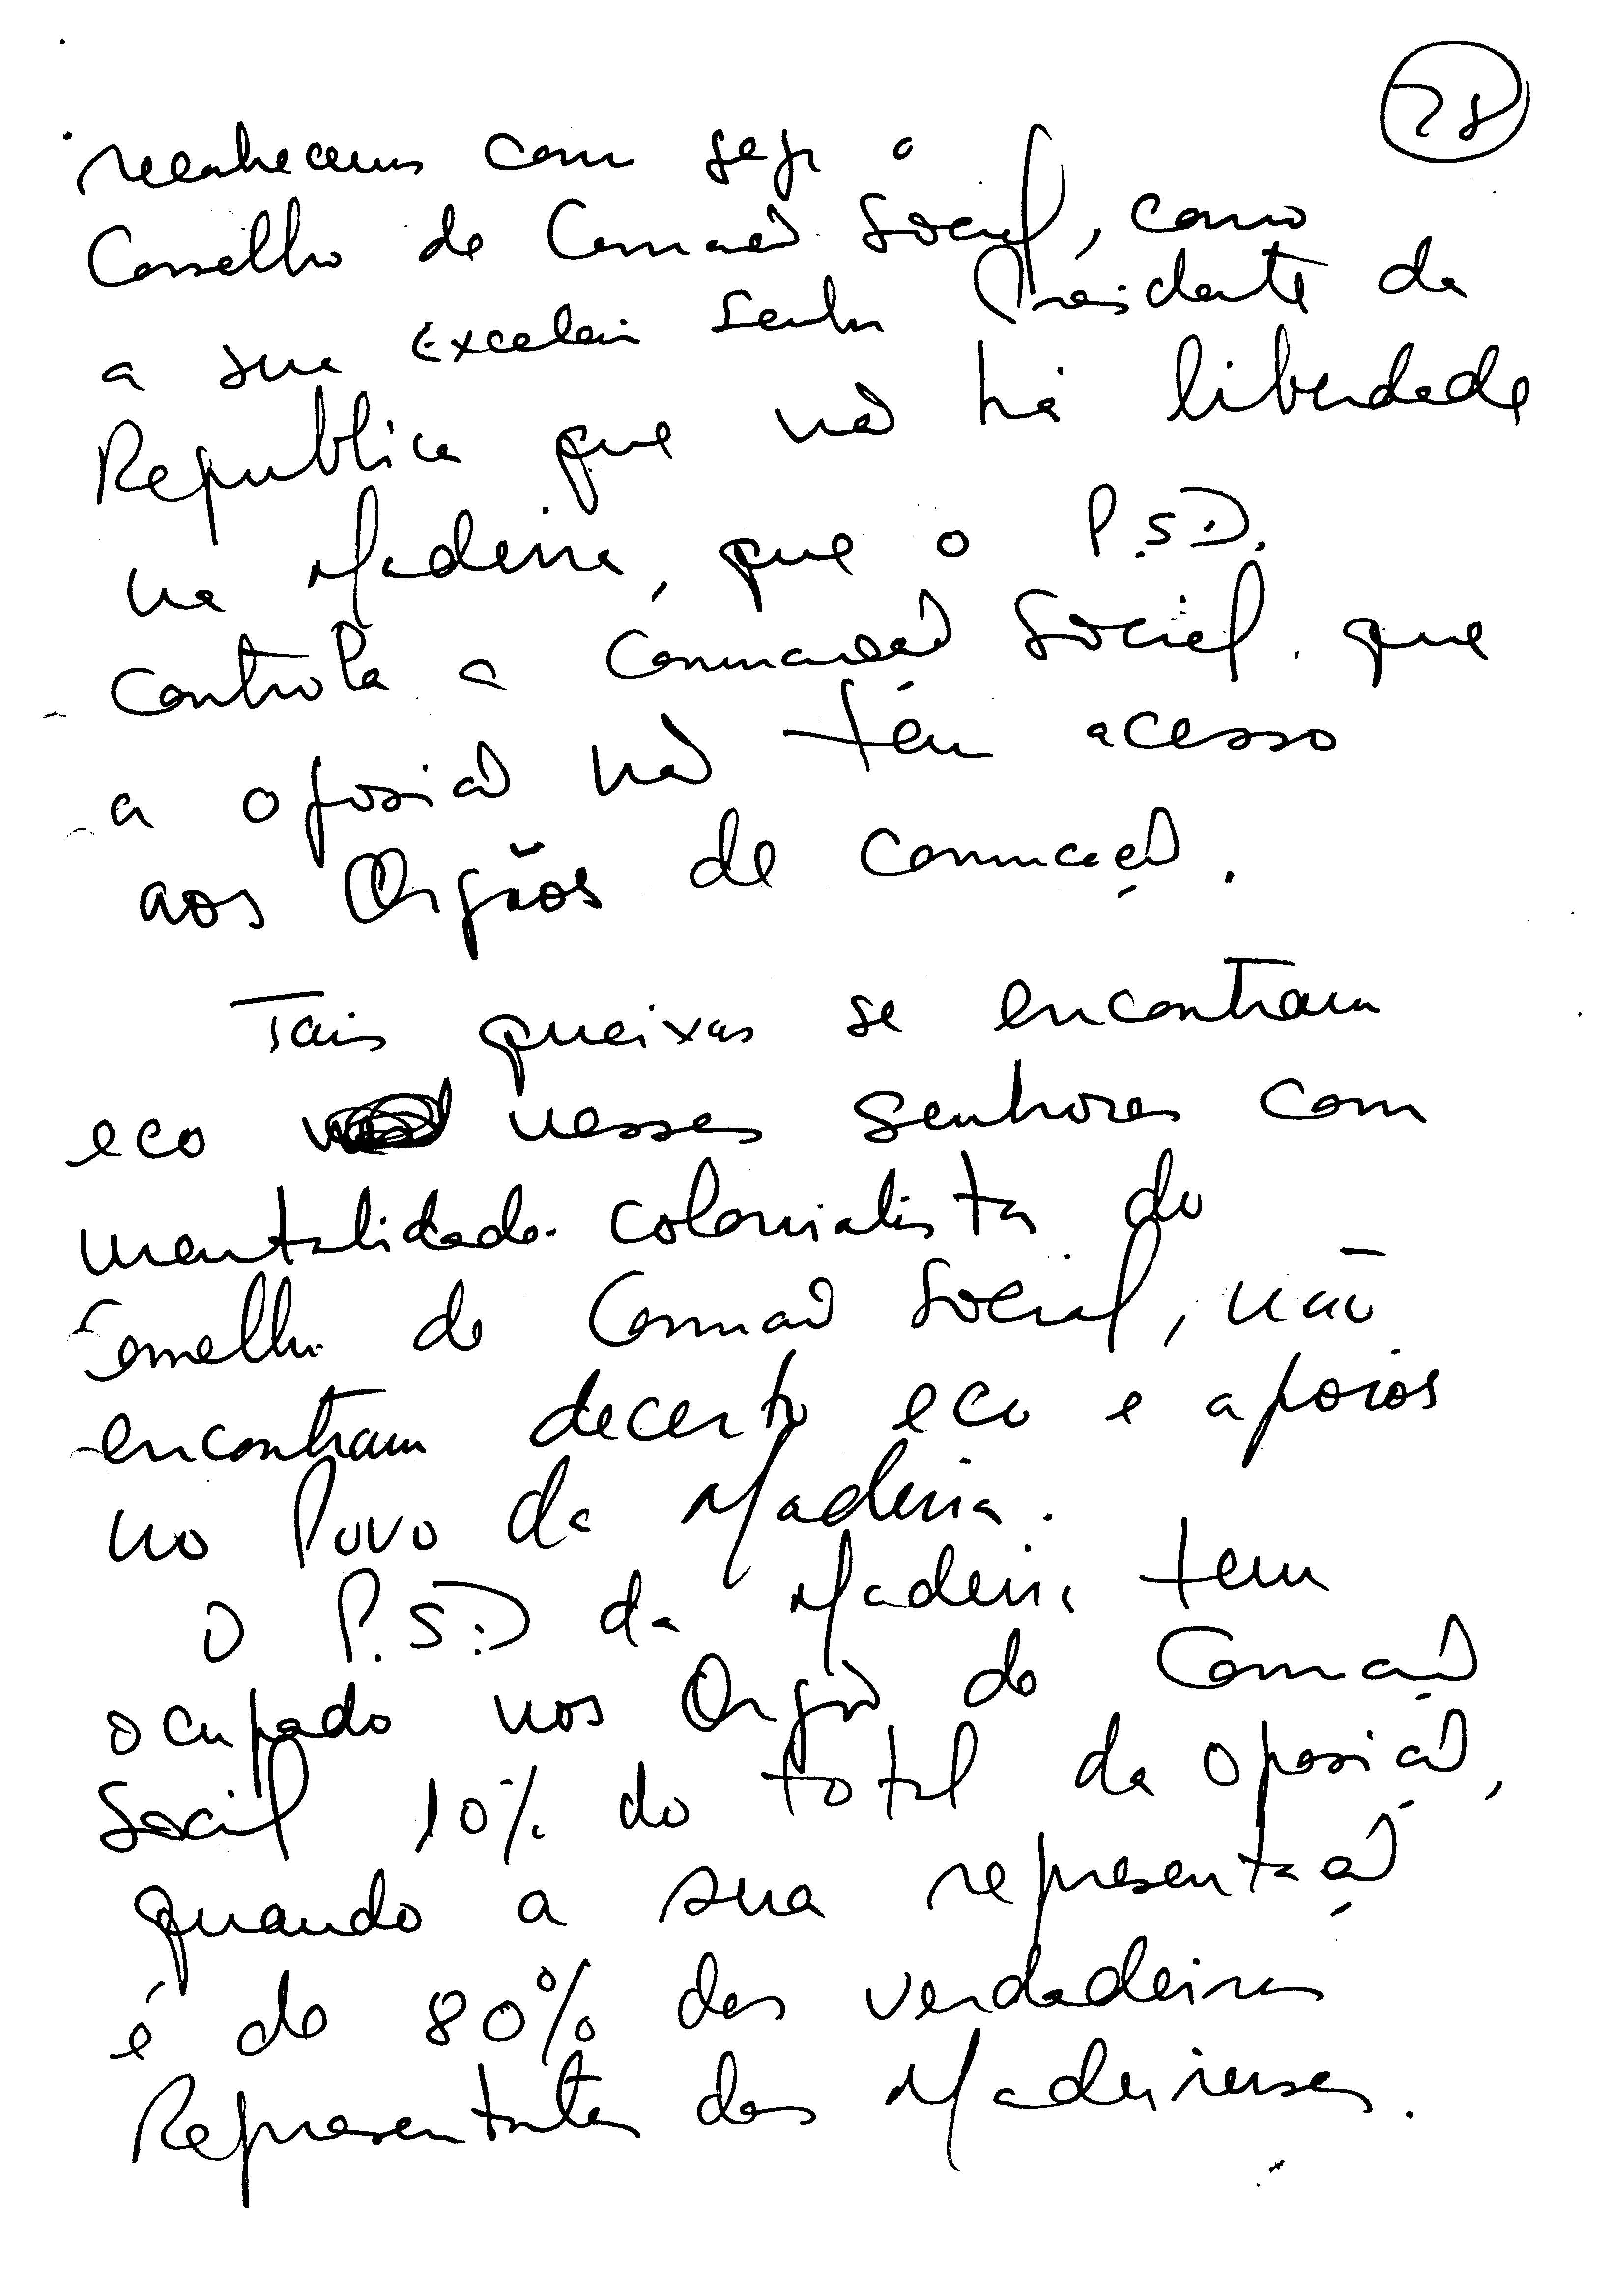 28
reconhecemos como seja o
Conselho de Comunicação Social, como
a sua Excelência Senhor Presidente da
Republica que não há liberdade
na Madeira, que o P.S.D.
controla a Comunicação Social. que
a oposição não têm acesso
aos Orgãos de comunicação.
Tais queixas se encontram
eco nesses senhores com
mentalidade colonialista do
Conselho de Comunicação Social, não
encontram decerto eco e apoios
no Povo da Madeira.
O P.S.D da Madeira tem
ocupado nos Orgão de Comunicação
Social 10% do total da oposição,
quando a sua representação
é de 80% dos verdadeiros
Representantes dos Madeirenses.